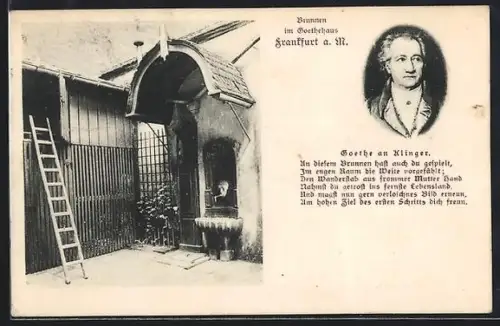 Brunnen
im Goethehaus
Frankfurt a. M.
Goethe an Klinger.
An diesem Brunnen hast auch du gespielt,
Im engen Raum die Weite vorgefühlt;
Den Wanderstab aus frommer Mutter Hand
Nahmst du getrost ins fernste Lebensland,
Und magst nun gern verloschnes Bild erneun,
Am hohen Ziel des ersten Schritts dich freun.